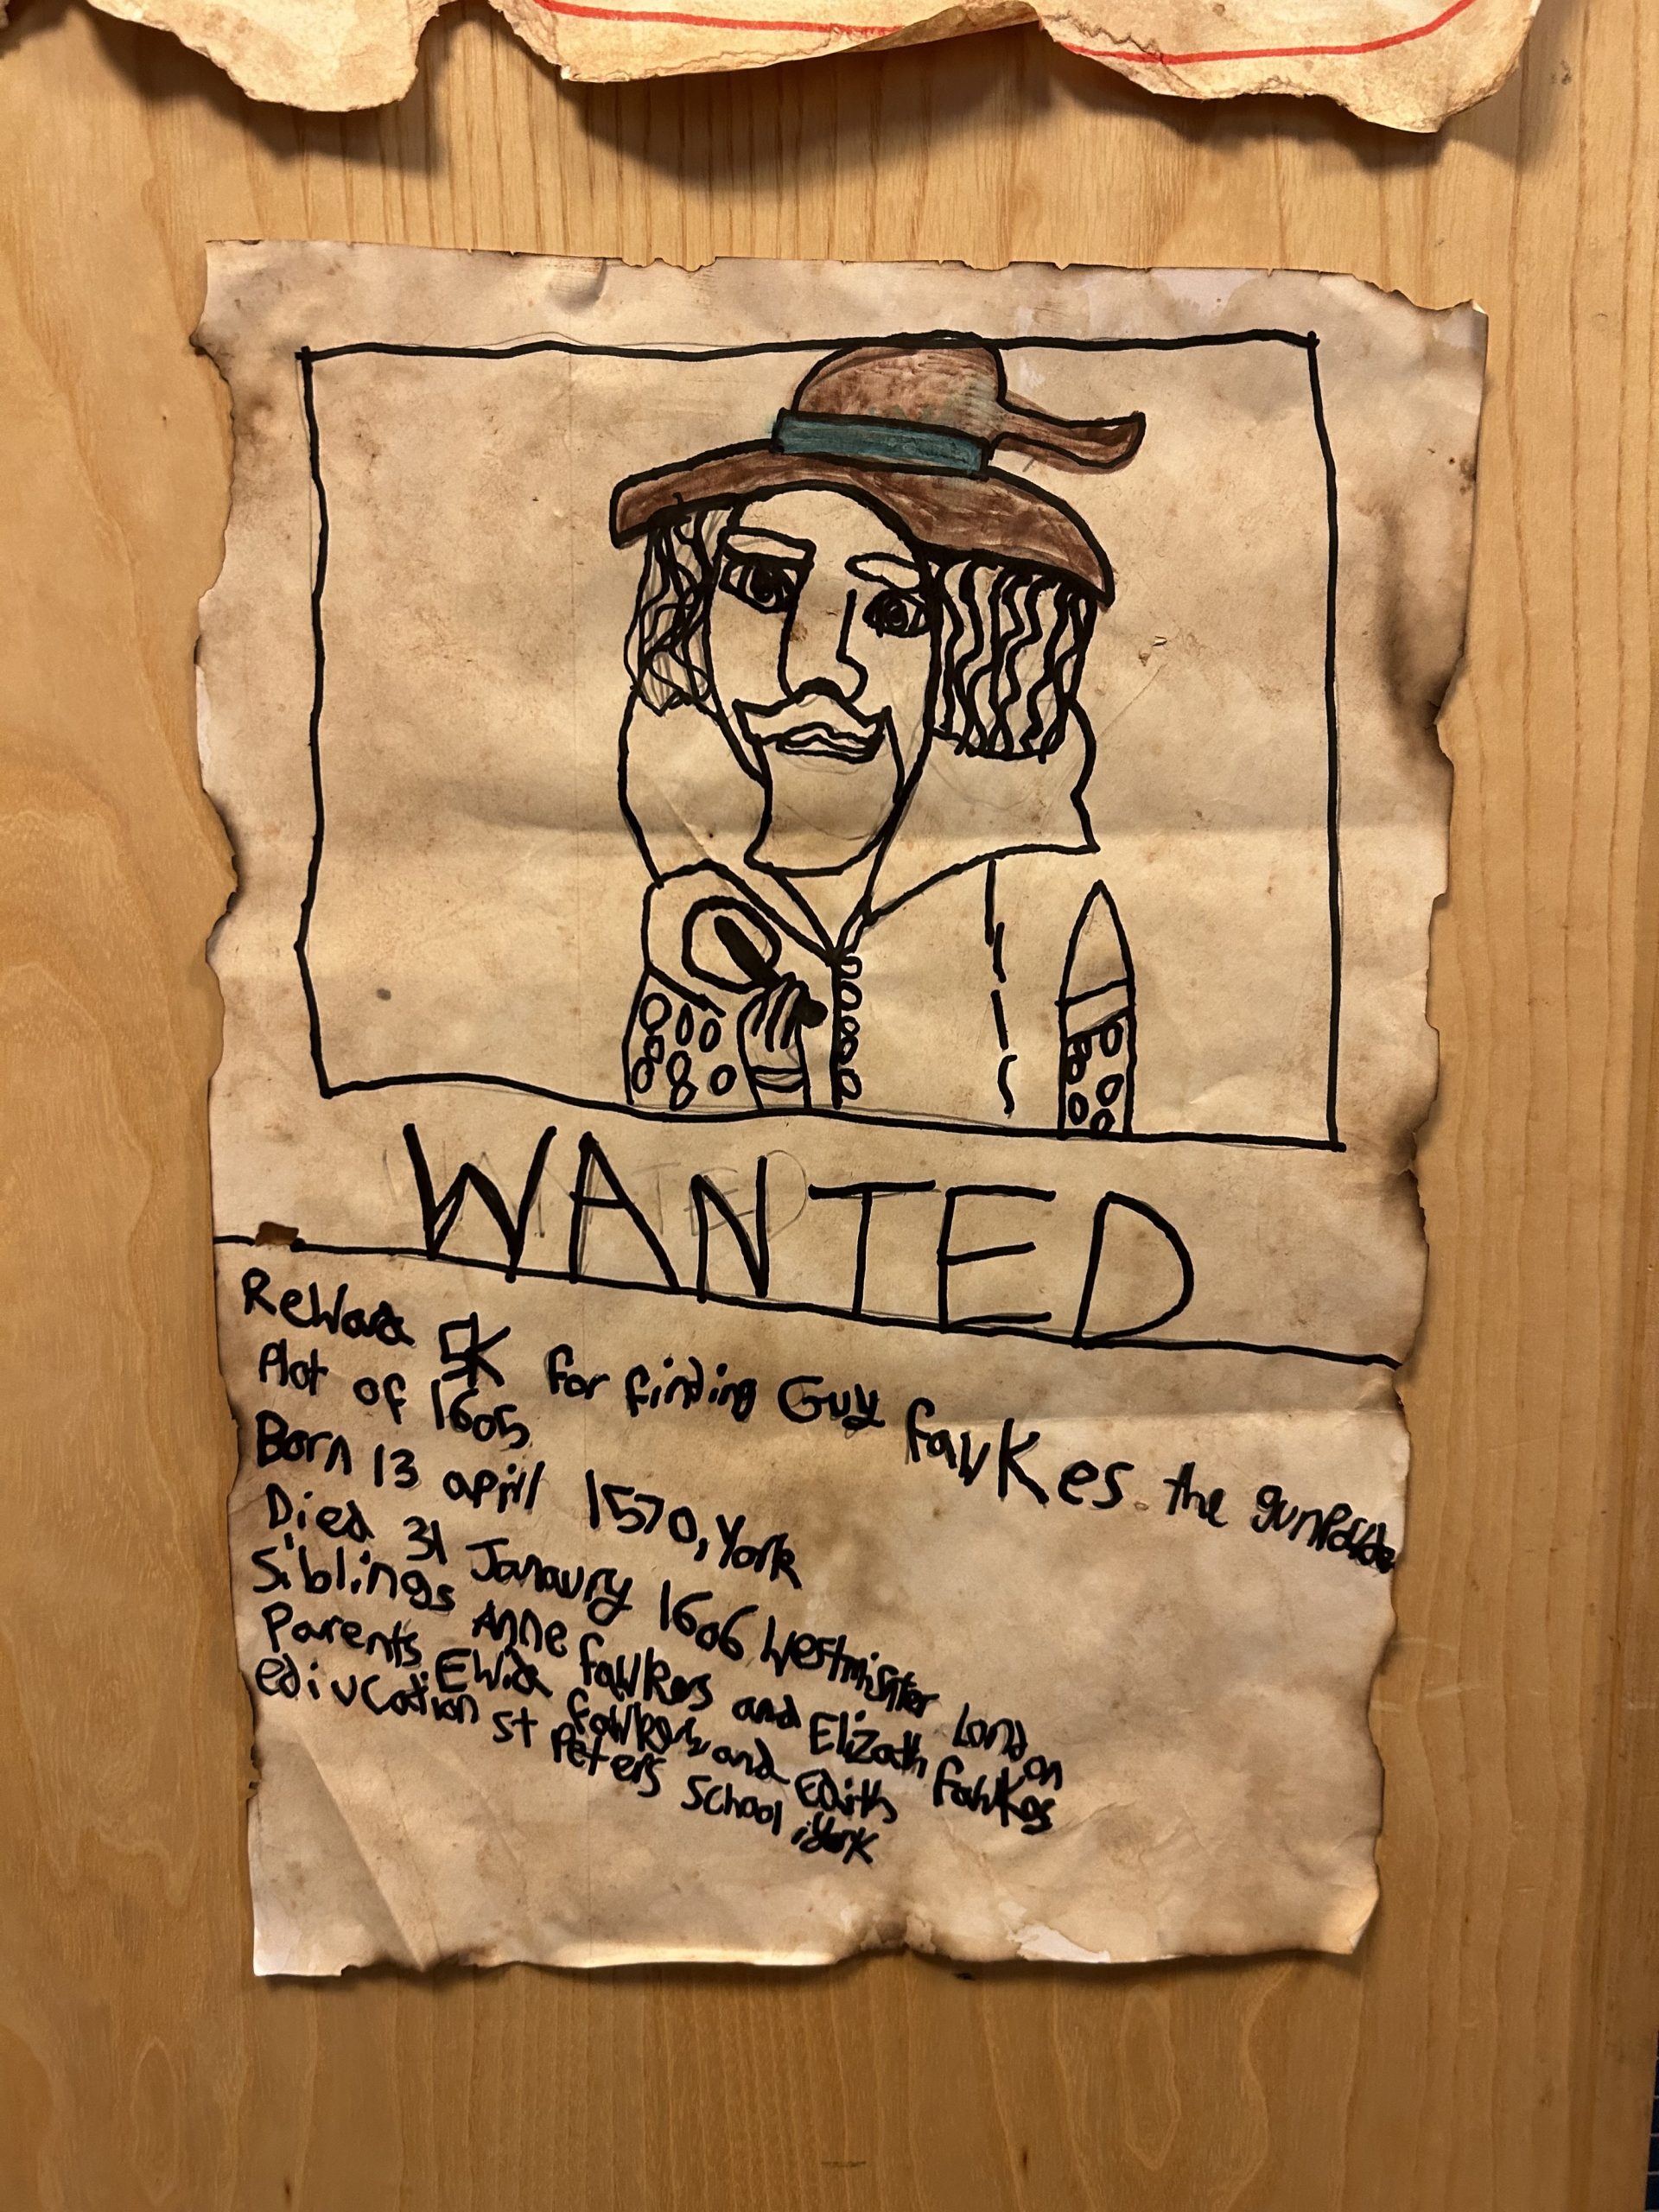 WANTED
Reward 5K for finding Guy fawkes the gunpowder
Plot of 1605
Born 13 april 1570, York
Died 31 Janaury 1606 Westminster London
Siblings Anne fawkes and Elizath fawkes
Parents Edith
edivcation st Peters School York